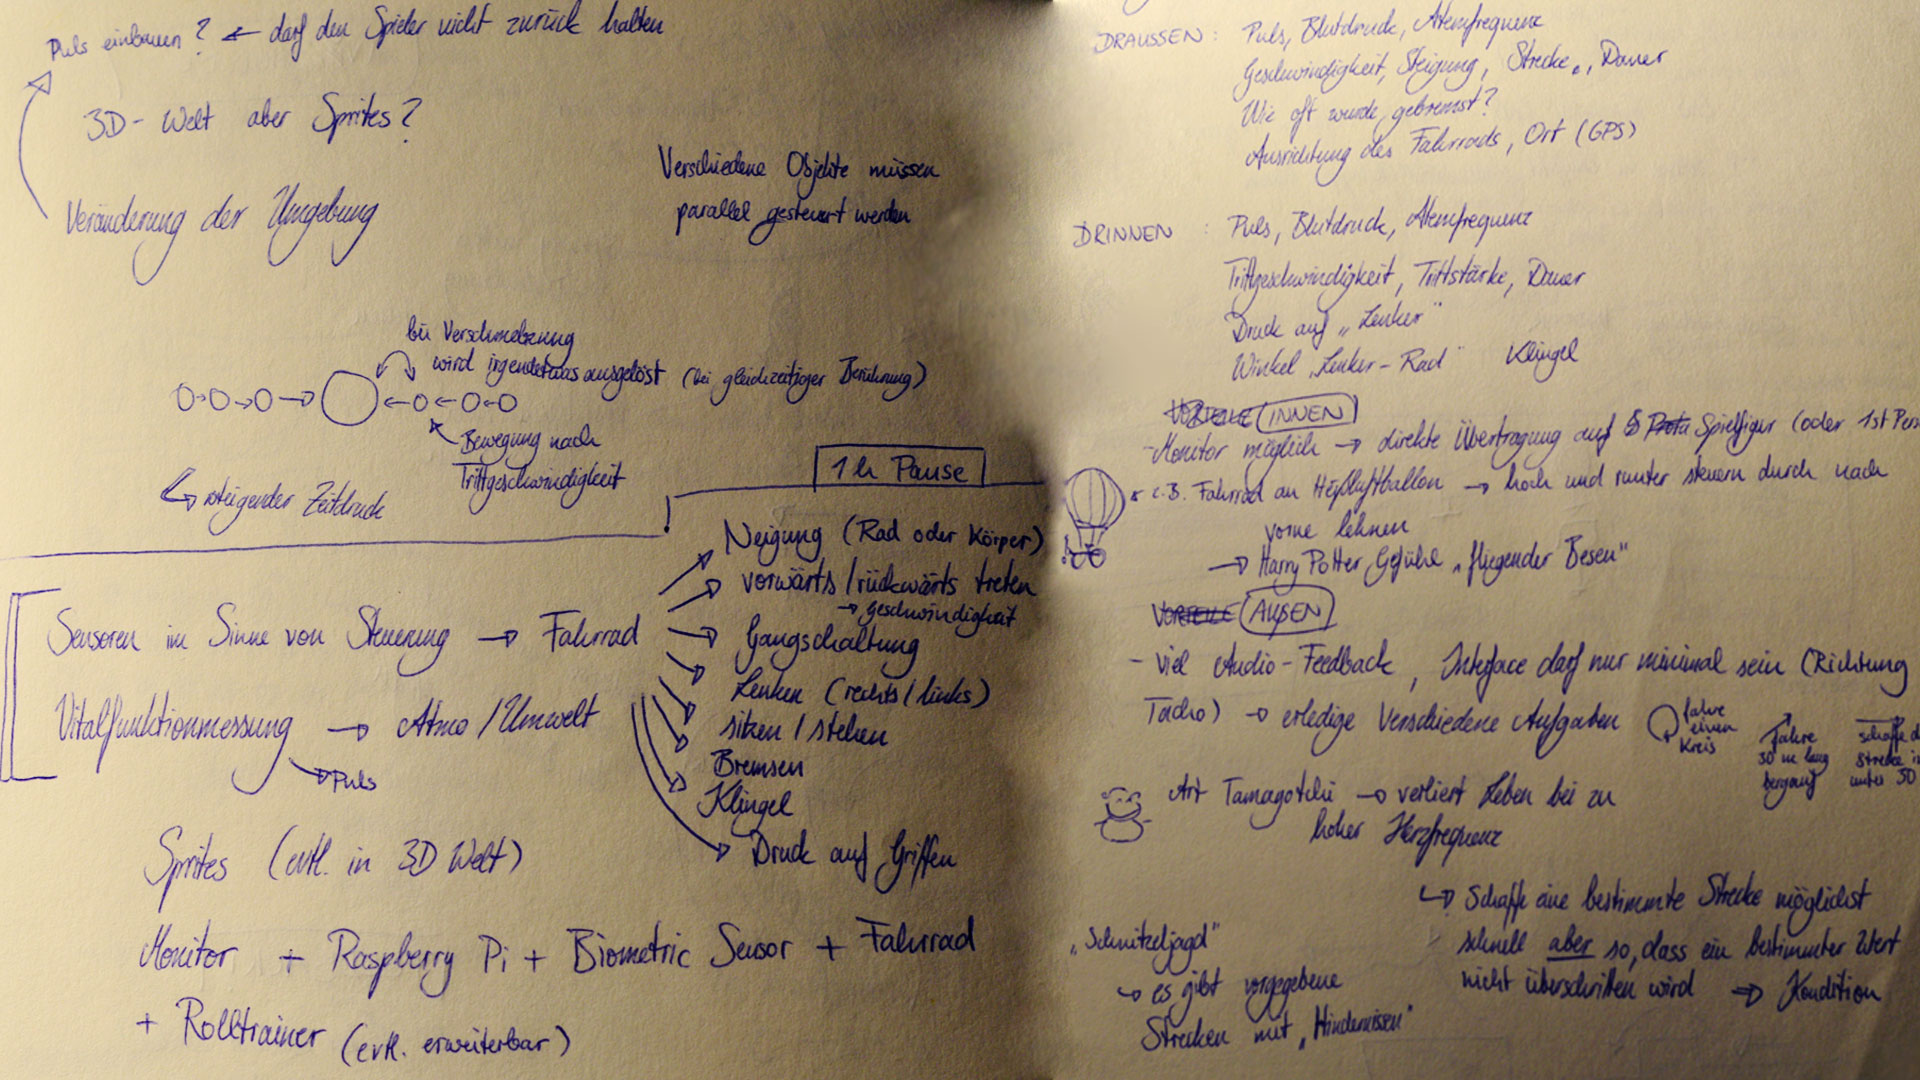 Puls einbauen? ← darf den Spieler nicht zurück halten
3D-Welt aber Sprites?
Veränderung der Umgebung
Verschiedene Objekte müssen
parallel gesteuert werden
bei Verschmelzung
wird irgendetwas ausgelöst (bei gleichzeitiger Berührung)
Bewegung nach
Trittgeschwindigkeit
↪ steigender Zeitdruck
1 h Pause
Sensoren im Sinne von Steuerung → Fahrrad
Vitalfunktionmessung → Atmo / Umwelt
→ Puls
Neigung (Rad oder Körper)
vorwärts / rückwärts treten
→ Geschwindigkeit
Gangschaltung
Lenken (rechts / links)
sitzen / stehen
Bremsen
Klingel
Druck auf Griffen
Sprites (evtl. in 3D Welt)
Monitor + Raspberry Pi + Biometric Sensor + Fahrrad
+ Rolltrainer (evtl. erweiterbar)
DRAUSSEN: Puls, Blutdruck, Atemfrequenz
Geschwindigkeit, Steigung, Strecke, Dauer
Wie oft wurde gebremst?
Ausrichtung des Fahrrads, Ort (GPS)
DRINNEN: Puls, Blutdruck, Atemfrequenz
Trittgeschwindigkeit, Trittstärke, Dauer
Druck auf „Lenker"
Winkel „Lenker-Rad" Klingel
VORTEILE INNEN
- Monitor möglich → direkte Übertragung auf Spielfigur (oder 1st Pers
z.B. Fahrrad an Heißluftballon → hoch und runter steuern durch nach
vorne lehnen
→ Harry Potter Gefühl „fliegender Besen"
VORTEILE AUßEN
- Viel Audio-Feedback, Interface darf nur minimal sein (Richtung
Tacho) → erledige Verschiedene Aufgaben
fahre
einen
Kreis
fahre
30 m lang
bergauf
schaffe d
Strecke i
unter 50
Art Tamagotchi → verliert Leben bei zu
hoher Herzfrequenz
↪ Schaffe eine bestimmte Strecke möglichst
schnell aber so, dass ein bestimmter Wert
nicht überschritten wird → Kondition
„Schnitzeljagd"
↪ es gibt vorgegebene
Strecken mit „Hindernissen"